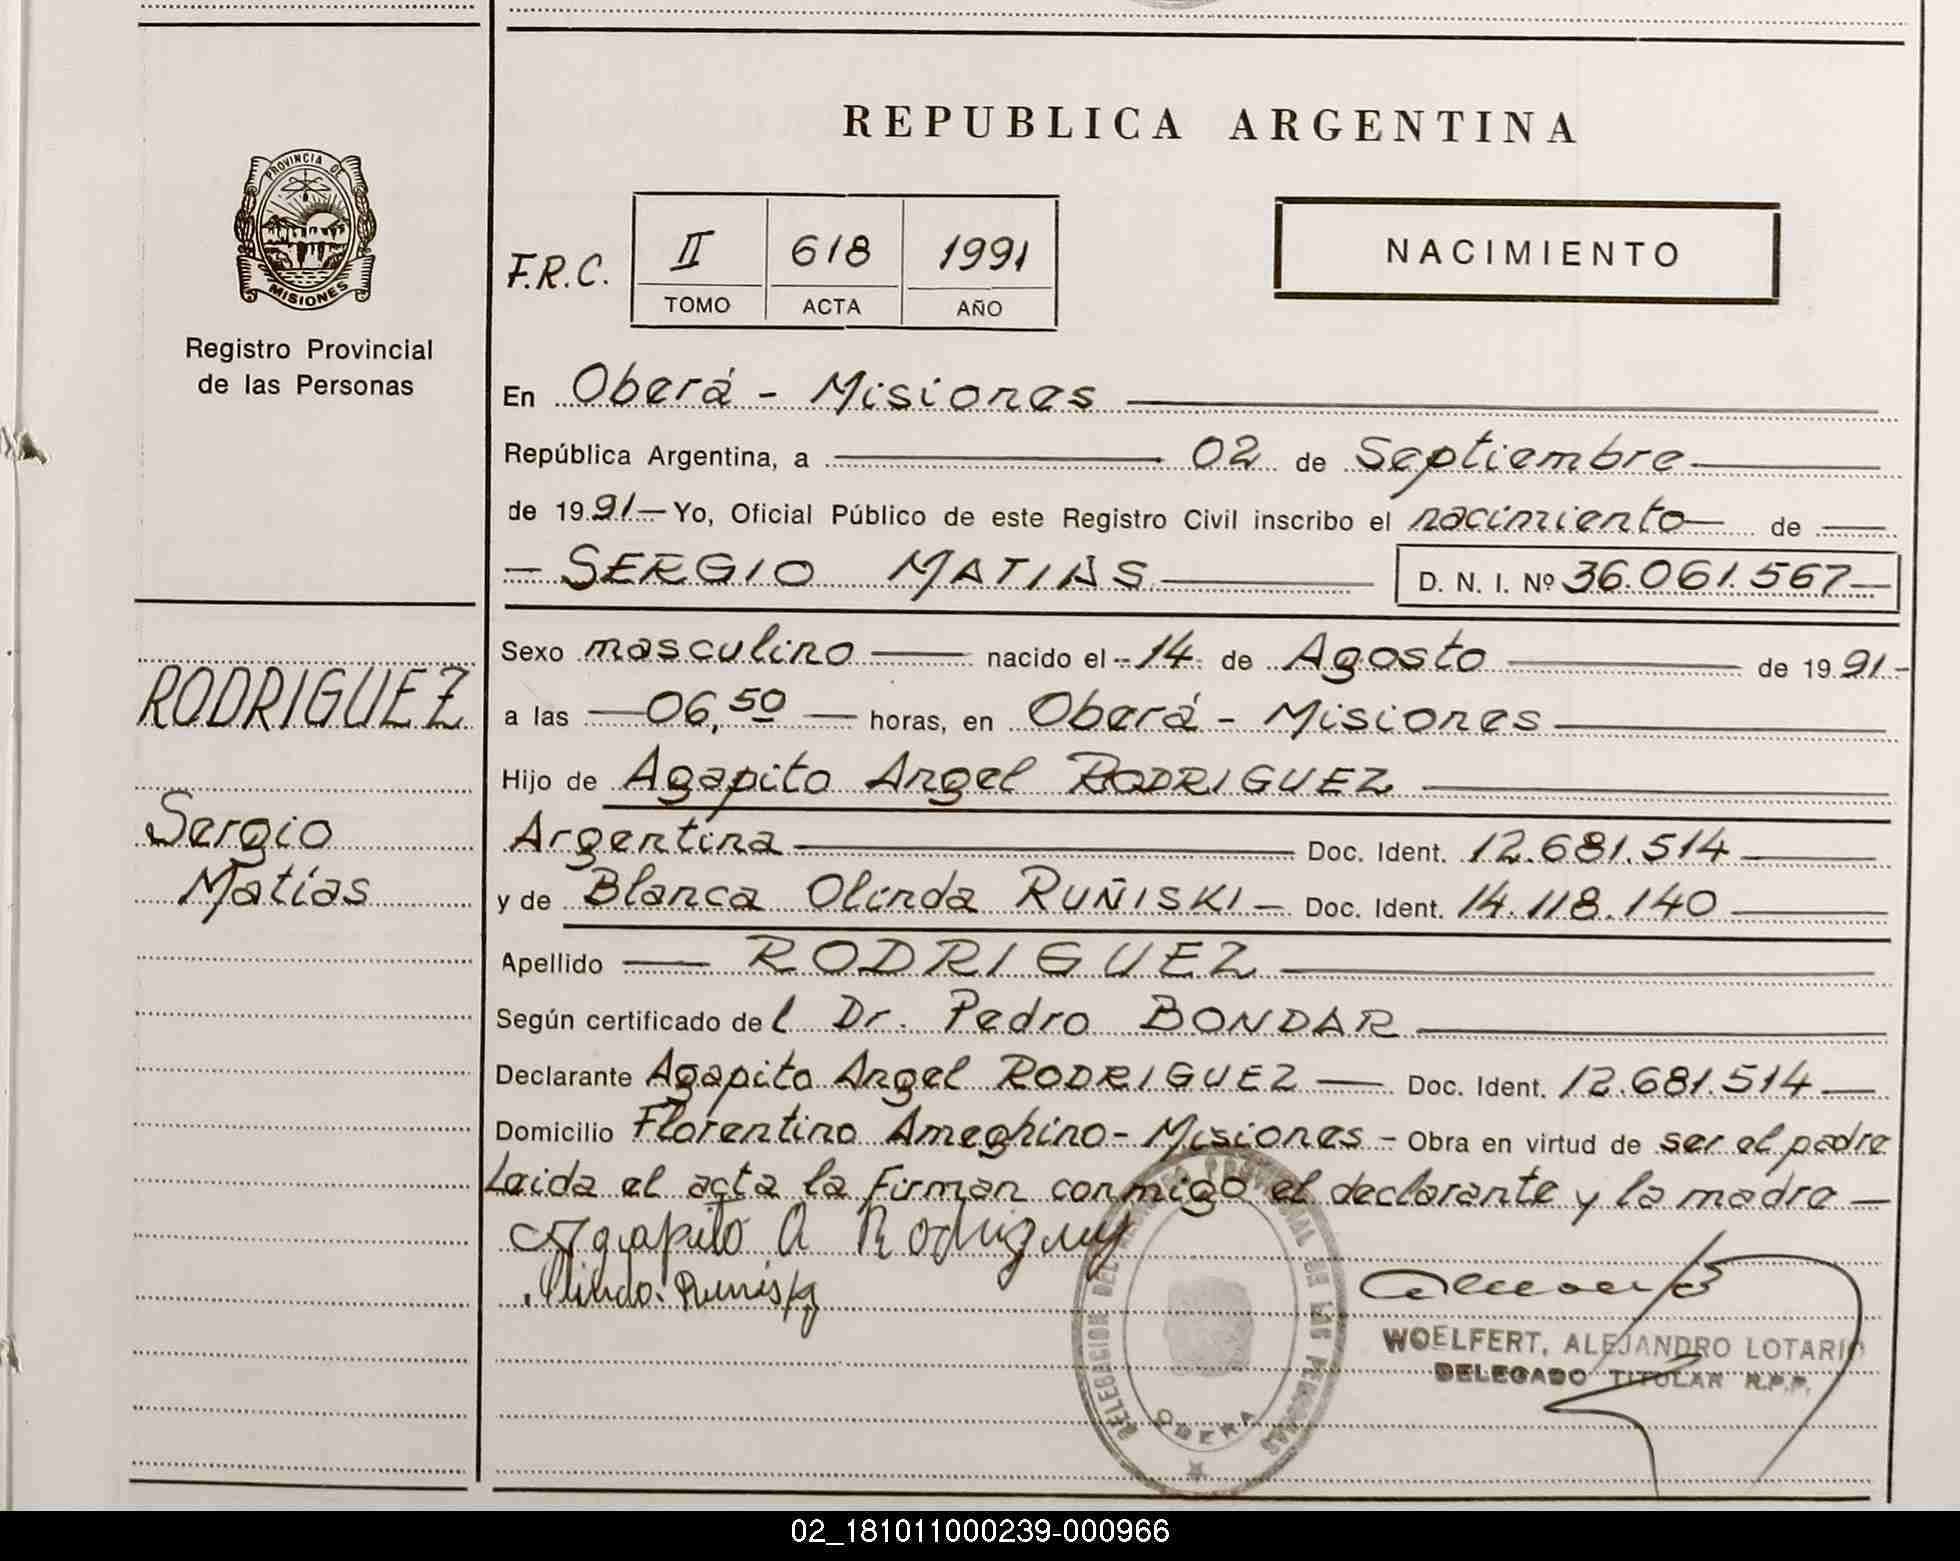 REPUBLICA ARGENTINA
PROVINCIA DE
MISIONES
Registro Provincial
de las Personas
F.R.C.
II 618 1991
TOMO ACTA AÑO
NACIMIENTO
En Oberá - Misiones
República Argentina, a 02 de Septiembre
de 1991 Yo, Oficial Público de este Registro Civil inscribo el nacimiento de
SERGIO MATIAS D. N. I. Nº 36.061.567
RODRIGUEZ
Sergio
Matias
Sexo masculino nacido el 14 de Agosto de 1991
a las 06,50 horas, en Oberá - Misiones
Hijo de Agapito Angel RODRIGUEZ
Argentina Doc. Ident. 12.681.514
y de Blanca Olinda RUÑISKI Doc. Ident. 14.118.140
Apellido RODRIGUEZ
Según certificado del Dr. Pedro BONDAR
Declarante Agapito Angel RODRIGUEZ Doc. Ident. 12.681.514
Domicilio Florentino Ameghino - Misiones - Obra en virtud de ser el padre
Leida el acta la firman conmigo el declarante y la madre
Agapito A Rodriguez
DELEGACION DEL REGISTRO PROVINCIAL DE LAS PERSONAS
OBERA
WOELFERT, ALEJANDRO LOTARIO
DELEGADO TITULAR R.P.P.
02_181011000239-000966